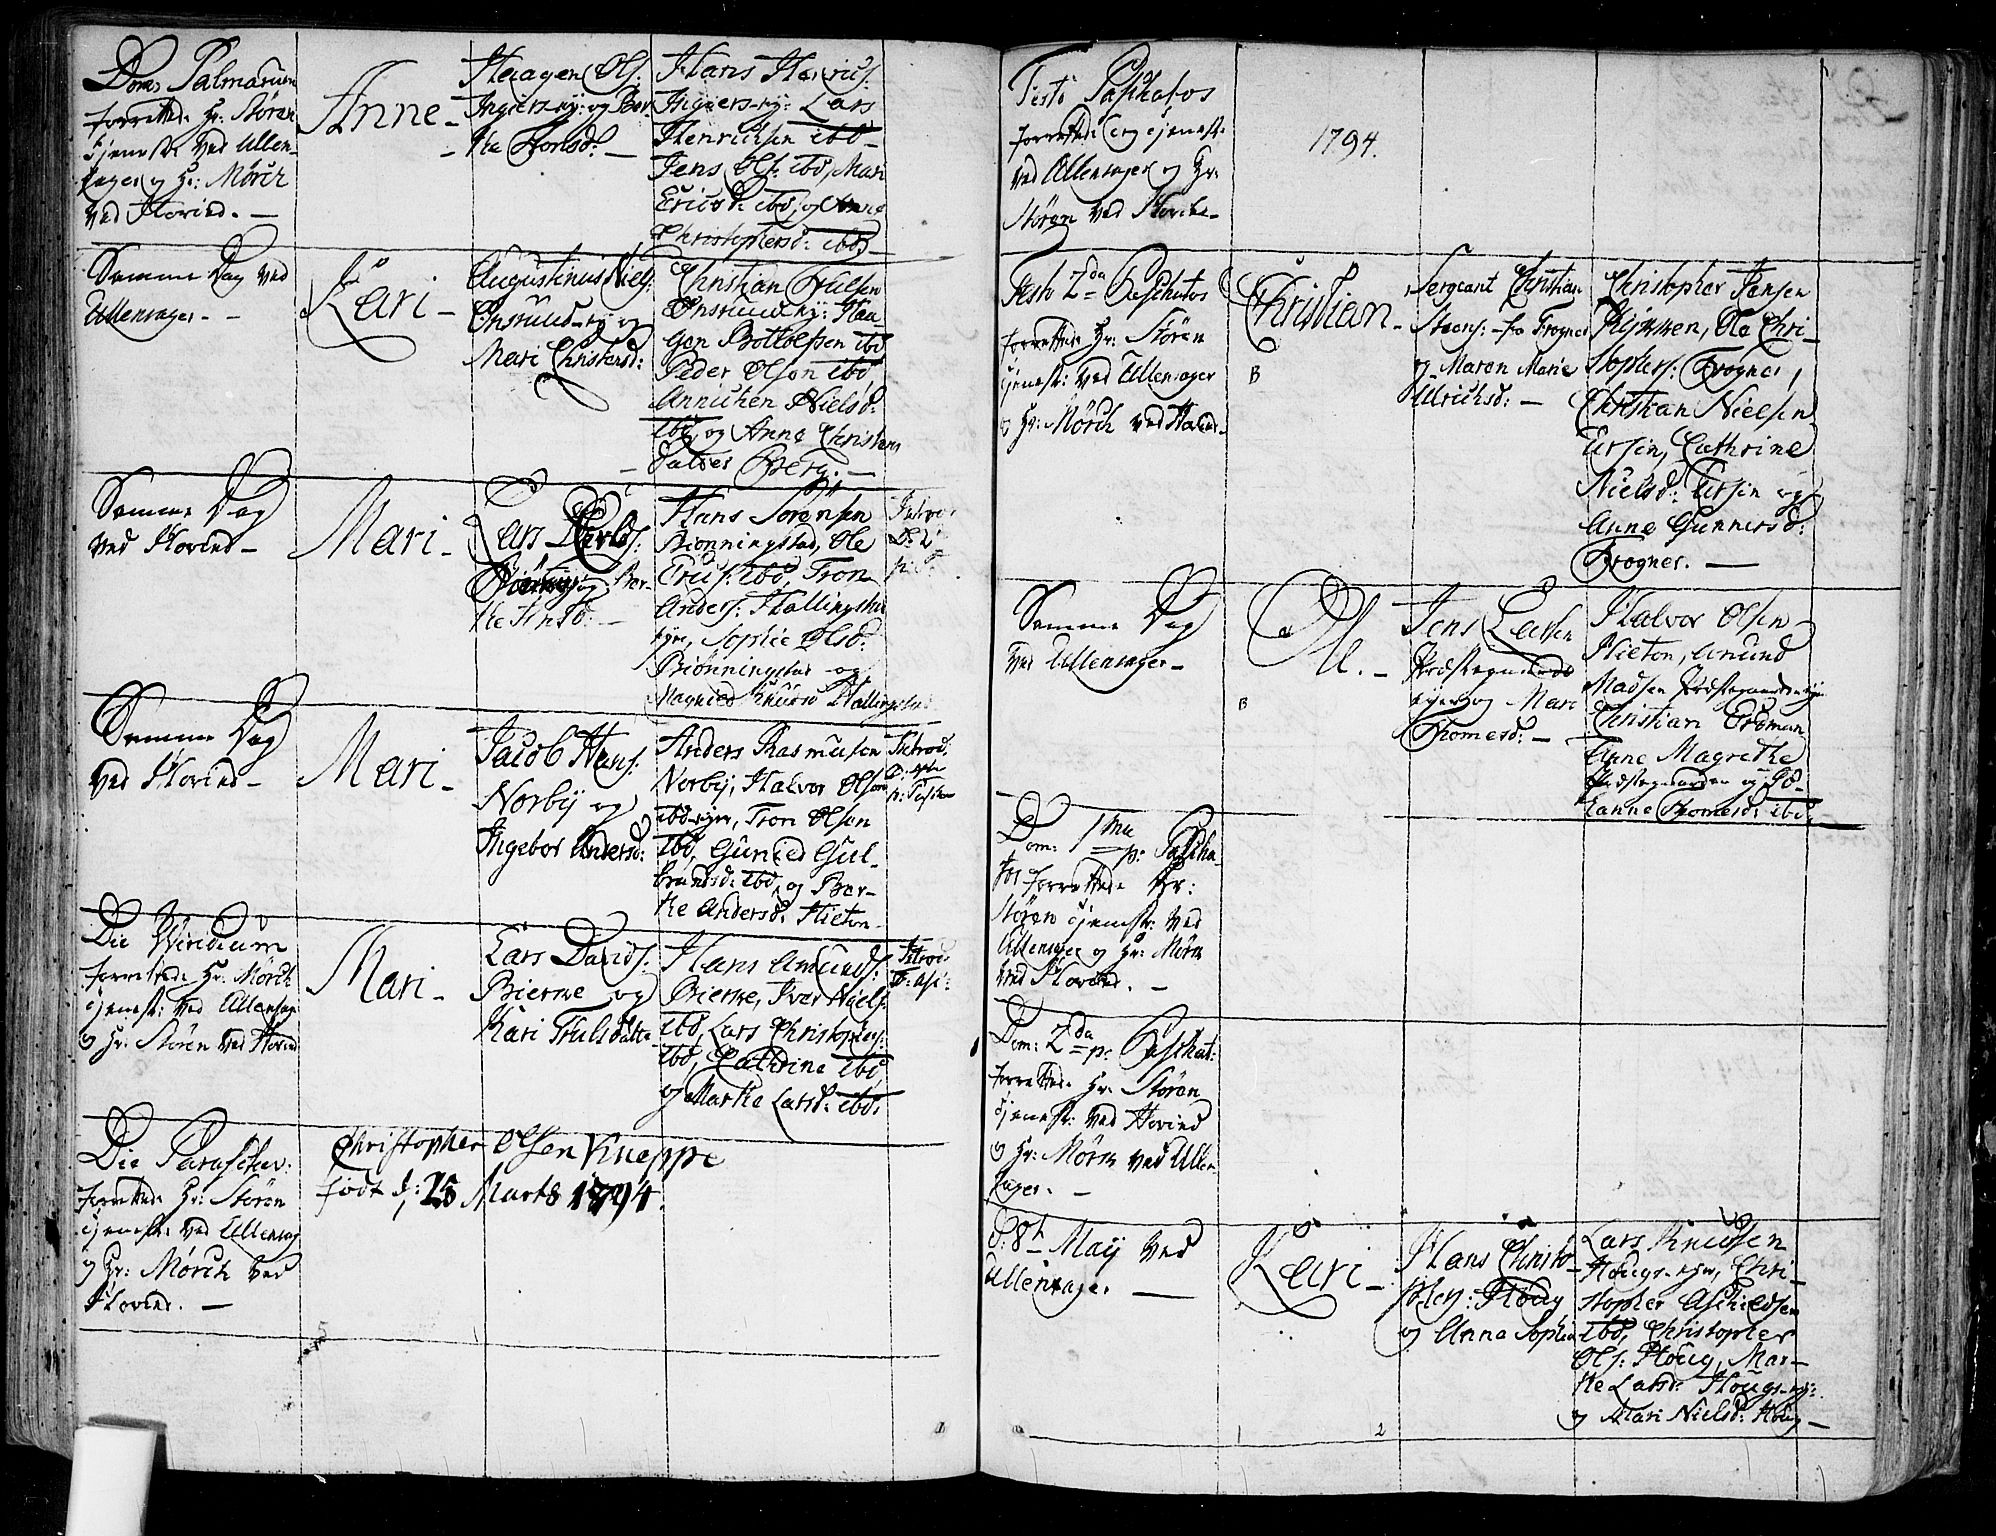 Dom: Palmarum
forrettede Hr: Støren
tjenest: ved Ullen-
sager og Hr: Mørch
ved Hovind. —
Anne –
Haagen Ols:
Ingiers-ey: og Ber-
the Hansd: —
Hans Henrics:
Ingiers-ey: Lars
Henrichsen ibd
Jens Ols: ibd, Mari
Ericsd: ibd, og Anne
Christophersd: ibd,
Samme Dag ved
Ullensager. –
Kari –
Augustinus Niels:
Onsrud-ey og
Mari Christensd:
Christian
Onsrud-ey: Haa-
gen Bottolfsen ibd
Peder Olsen ibd,
Annichen Nielsd:
ibd, og Anne Christens
datter Berg. —
Samme Dag
ved Hovind –
Mari –
Lars
Ber-
the —
Hans Sørensen
Brønningstad, Ole
Erics: ibd, Tron
Anders: Hallingstad
eyer, Sophie Olsd:
Brønningstad og
Magnild Knudsd Hallingstad
Introd:
Samme Dag
ved Hovind –
Mari –
Jacob Hans:
Norby og
Ingebor Andersd:
Anders Rasmusen
Norby, Halvor Olsen
ibd-eyer, Tron Olsen
ibd, Gunild Gul-
brandsd: ibd, og Ber-
the Andersd: Hieton.
Introd:
Die Viridium
forrettede Hr: Mørch
tjenest: ved Ullensager
og Hr: Støren ved Hovind
Mari –
Lars Davids:
Bierke og
Kari Trulsdatter
Hans Amunds:
Bierke, Iver Niels:
ibd, Lars Christophers:
ibd, Cathrine ibd
og Marthe Larsd: ibd,
Introd:
Die Parascev:
forrettede Hr: Støren
tjenest: ved Ullensag
og Hr: Mørch ved
Hovind. —
Christopher Olsen Kneppe
født d: 25 Marts 1794.
Festo Paschatos
forrettede og tjenest:
ved Ullensager og Hr:
Støren ved Hovind –
1794.
Festo 2da Paschatos
forrettede Hr: Støren
tjenest: ved Ullensager
og Hr: Mørch ved Hovind
Christian –
B
Sergeant Christian
Steens: – fra Frogner
og Maren Marie
Ulrichsd: —
Christopher Jensen
Ole Chri-
stophers: Frogner,
Christian Nielsen
Cathrine
Nielsd: og
Anne Gunnersd:
Frogner. —
Samme Dag
ved Ullensager –
Ole. –
B
Jens Larsen
Præstegaards
eyer og Mari
Thomesd: —
Halvor Olsen
Hieton, Amund
Madsen Præstegaards-eyer
Christian Erdman
Anne Magrethe
Præstegaarden og Jo-
hanne Thomesd: ibd,
Dom: 1ma p: Pascha-
tos forrettede Hr:
Støren tjenest: ved
Ullensager og Hr: Mørch
ved Hovind. —
Dom: 2da p: Paschat:
forrettede Hr: Støren
tjenest: ved Hovind
og Hr: Mørch ved Ullen-
sager. —
d: 8t May ved
Ullensager —
Kari –
Hans Christo-
phers: Houg
og Anne Sophie
Lars Knudsen
Hougs-eyer, Chri-
stopher Aschildsen
ibd, Christopher
Ols: Houg, Mar-
the Larsd: Hougs-ey:
og Mari Nielsd: Houg –
1
2